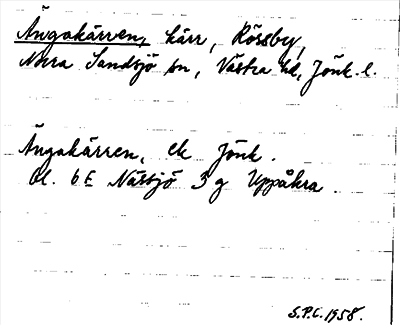 Ängakärren, kärr, Rössby,
Norra Sandsjö sn, Västra hd, Jönk. l.
Ängakärren, ek Jönk.
bl. 6 E Nässjö 3 g Uppåkra.
S.P.C. 1958.